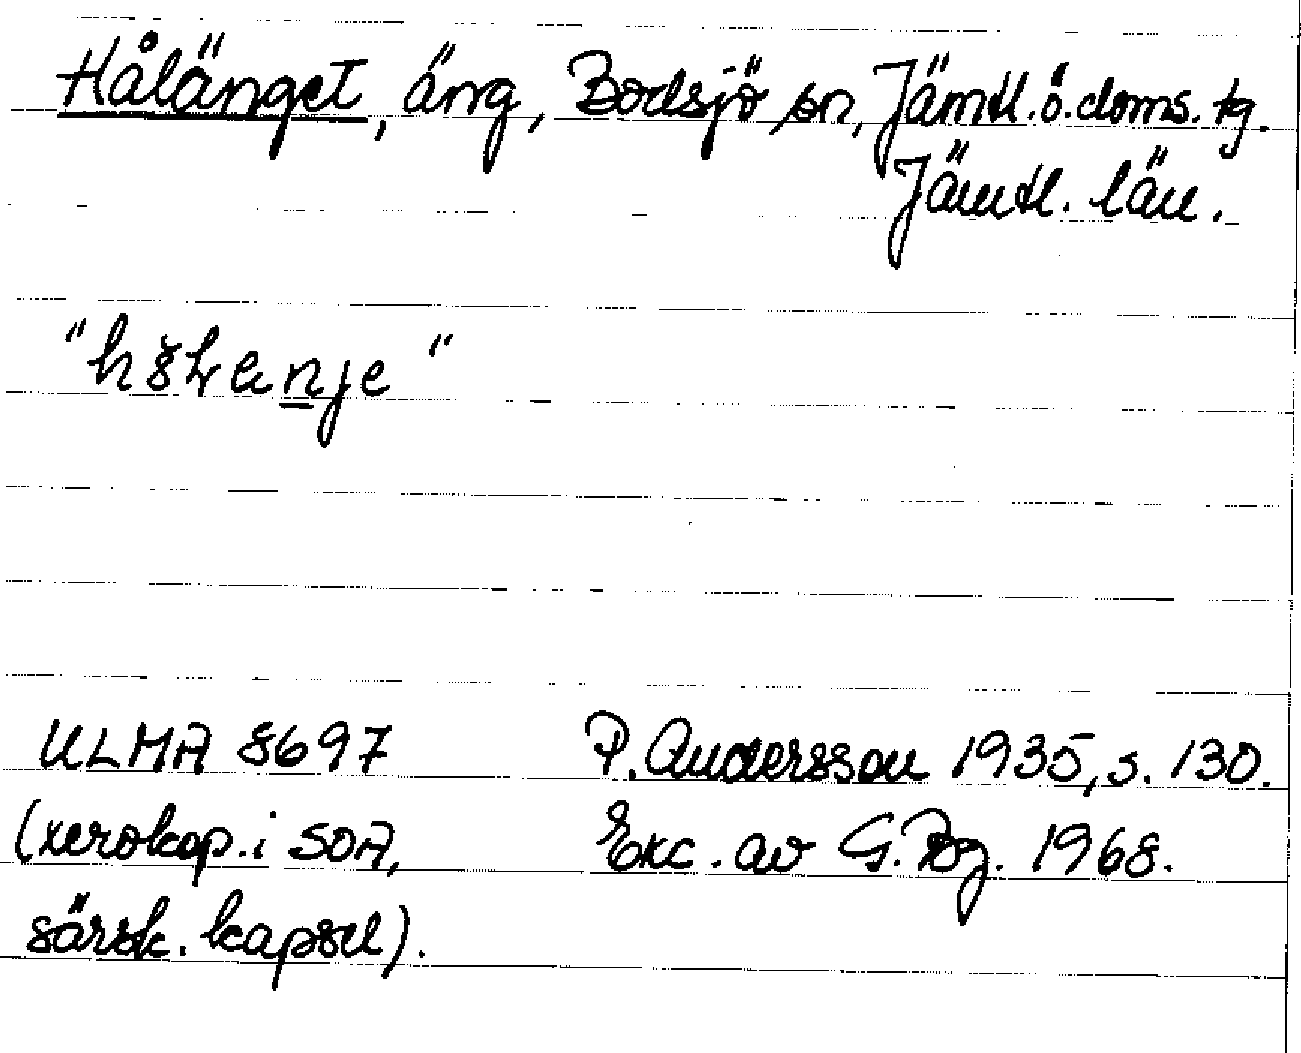 Hålänget, äng, Bodsjö sn, Jämtl. ö. doms. tg.
Jämtl. län.
ULMA 8697 P. Andersson 1935, s. 130.
(xerokop. i SOA, Exc. av G. Bg. 1968.
särsk. kapsel).